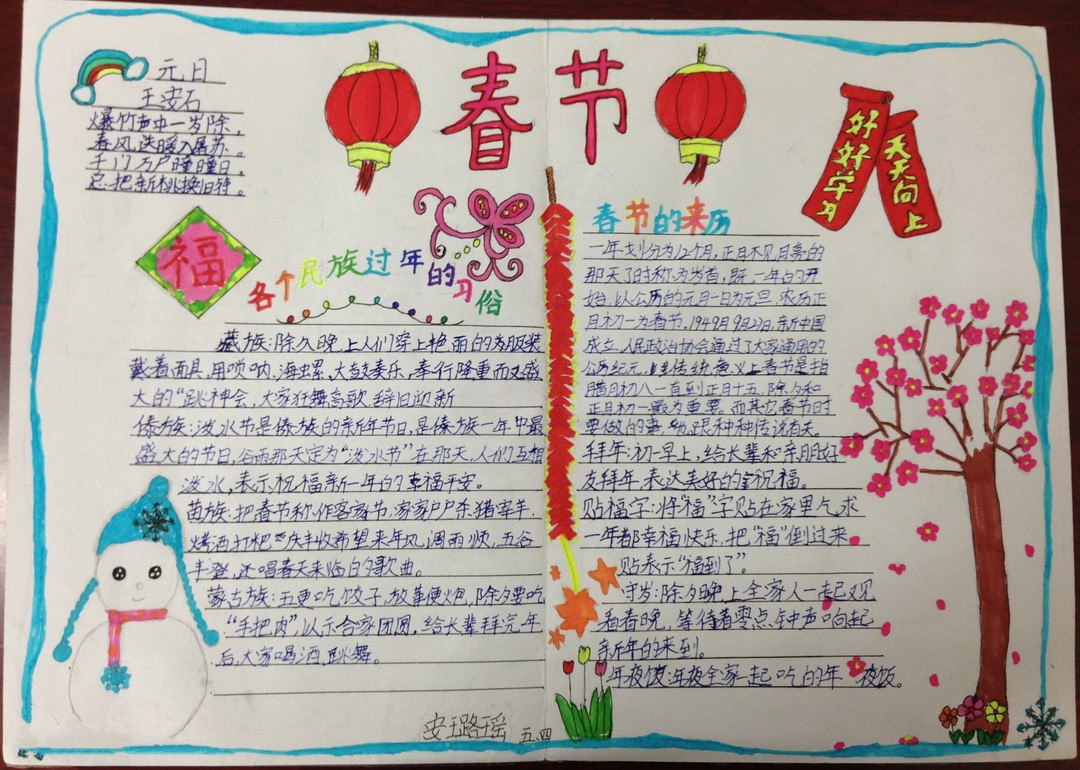 元日
王安石
爆竹声中一岁除，
春风送暖入屠苏。
千门万户曈曈日，
总把新桃换旧符。
春节
好好学习
天天向上
福
各个民族过年的习俗
藏族：除夕晚，上人们穿上艳丽的为服装
戴着面具，用唢呐，海螺、大鼓奏乐，奉行隆重而又盛
大的“跳神会，大家狂舞高歌辞旧迎新
傣族：泼水节是傣族的新年节日，是傣族一年中最
盛大的节日，谷雨那天定为“泼水节”在那天，人们互相
泼水，表示祝福新一年的幸福平安。
苗族：把春节称作客家节，家家户户杀猪宰羊
烤酒打粑庆丰收希望来年风调雨顺，五谷
丰登，还唱春天来临白的歌曲。
蒙古族：五更吃饺子，放革便火包，除夕要吃
“手把肉”以示合家团圆，给长辈拜完年
后，大家喝酒，跳舞。
春节的来历
一年划分为12个月，正月不见月亮的
那天了时称为岁首，既一年的开
始，以公历的元月一日为元旦，农历正
月初一为春节，1949月9月27日，新中国
成立，人民政治协会通过了大家通用的
公历纪元，传统意义上春节是指
腊月初八一直到正月十五，除夕和
正月初一最为重要。而其它春节时
要做的事 跟种种传说有关。
拜年：初一早上，给长辈和亲朋好
友拜年，表达美好的祝福。
贴福字：将“福”字贴在家里乞求
一年都幸福快乐，把“福”倒过来
贴表示“福到了”。
守岁：除夕晚上全家人一起观
看春晚，等待着零点钟声响起
新年的来到。
年夜饭：年夜全家一起吃的年夜饭。
安珏路瑶 五.四